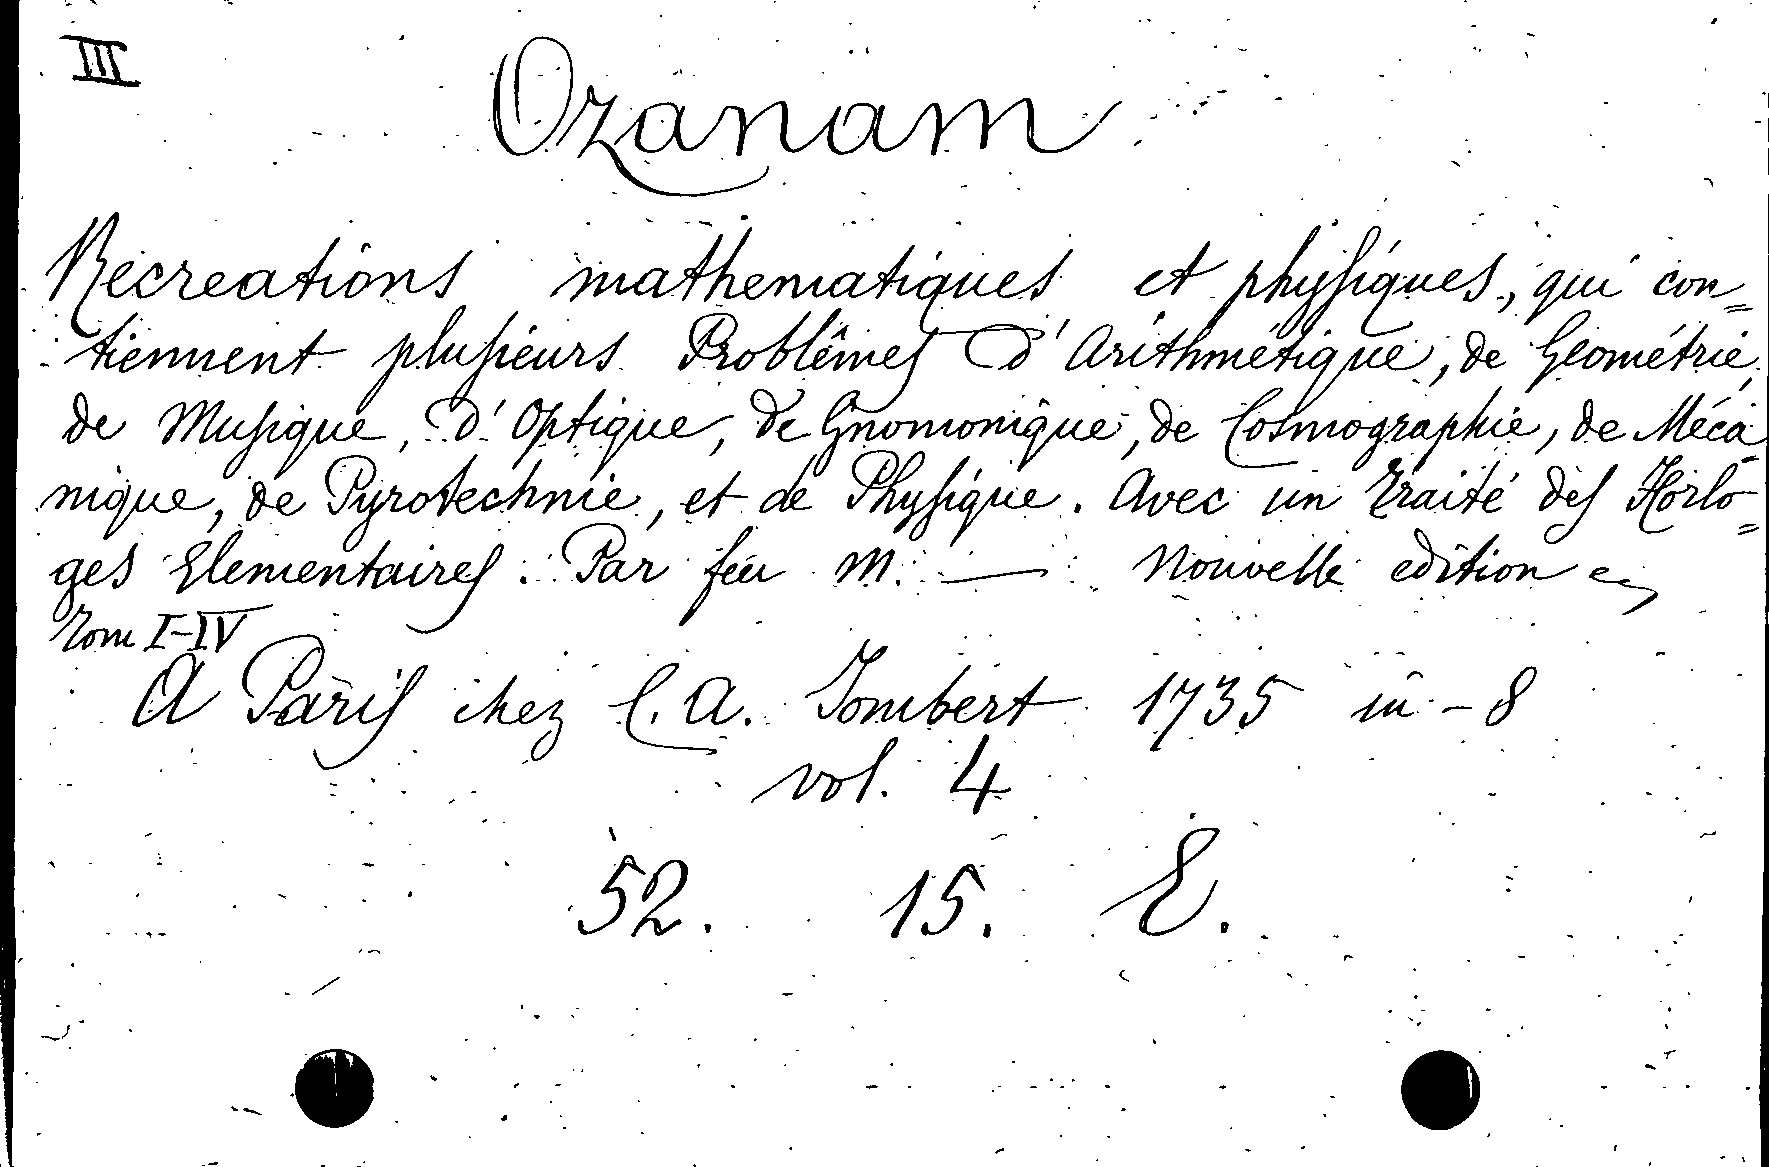 III
Ozanam
Recreations mathematiques et physiques, qui con=
tiennent plusieurs Problêmes d'Arithmétique, de Géométrie,
de Musique, d'Optique, de Gnomonique, de Cosmographie, de Méca=
nique, de Pyrotechnie, et de Physique. Avec un Traité des Horlo=
ges Elementaires. Par feu M. — Nouvelle edition
Tom I-IV
A Paris chez C. A. Jombert 1735 in-8
vol. 4
52. 15. E.